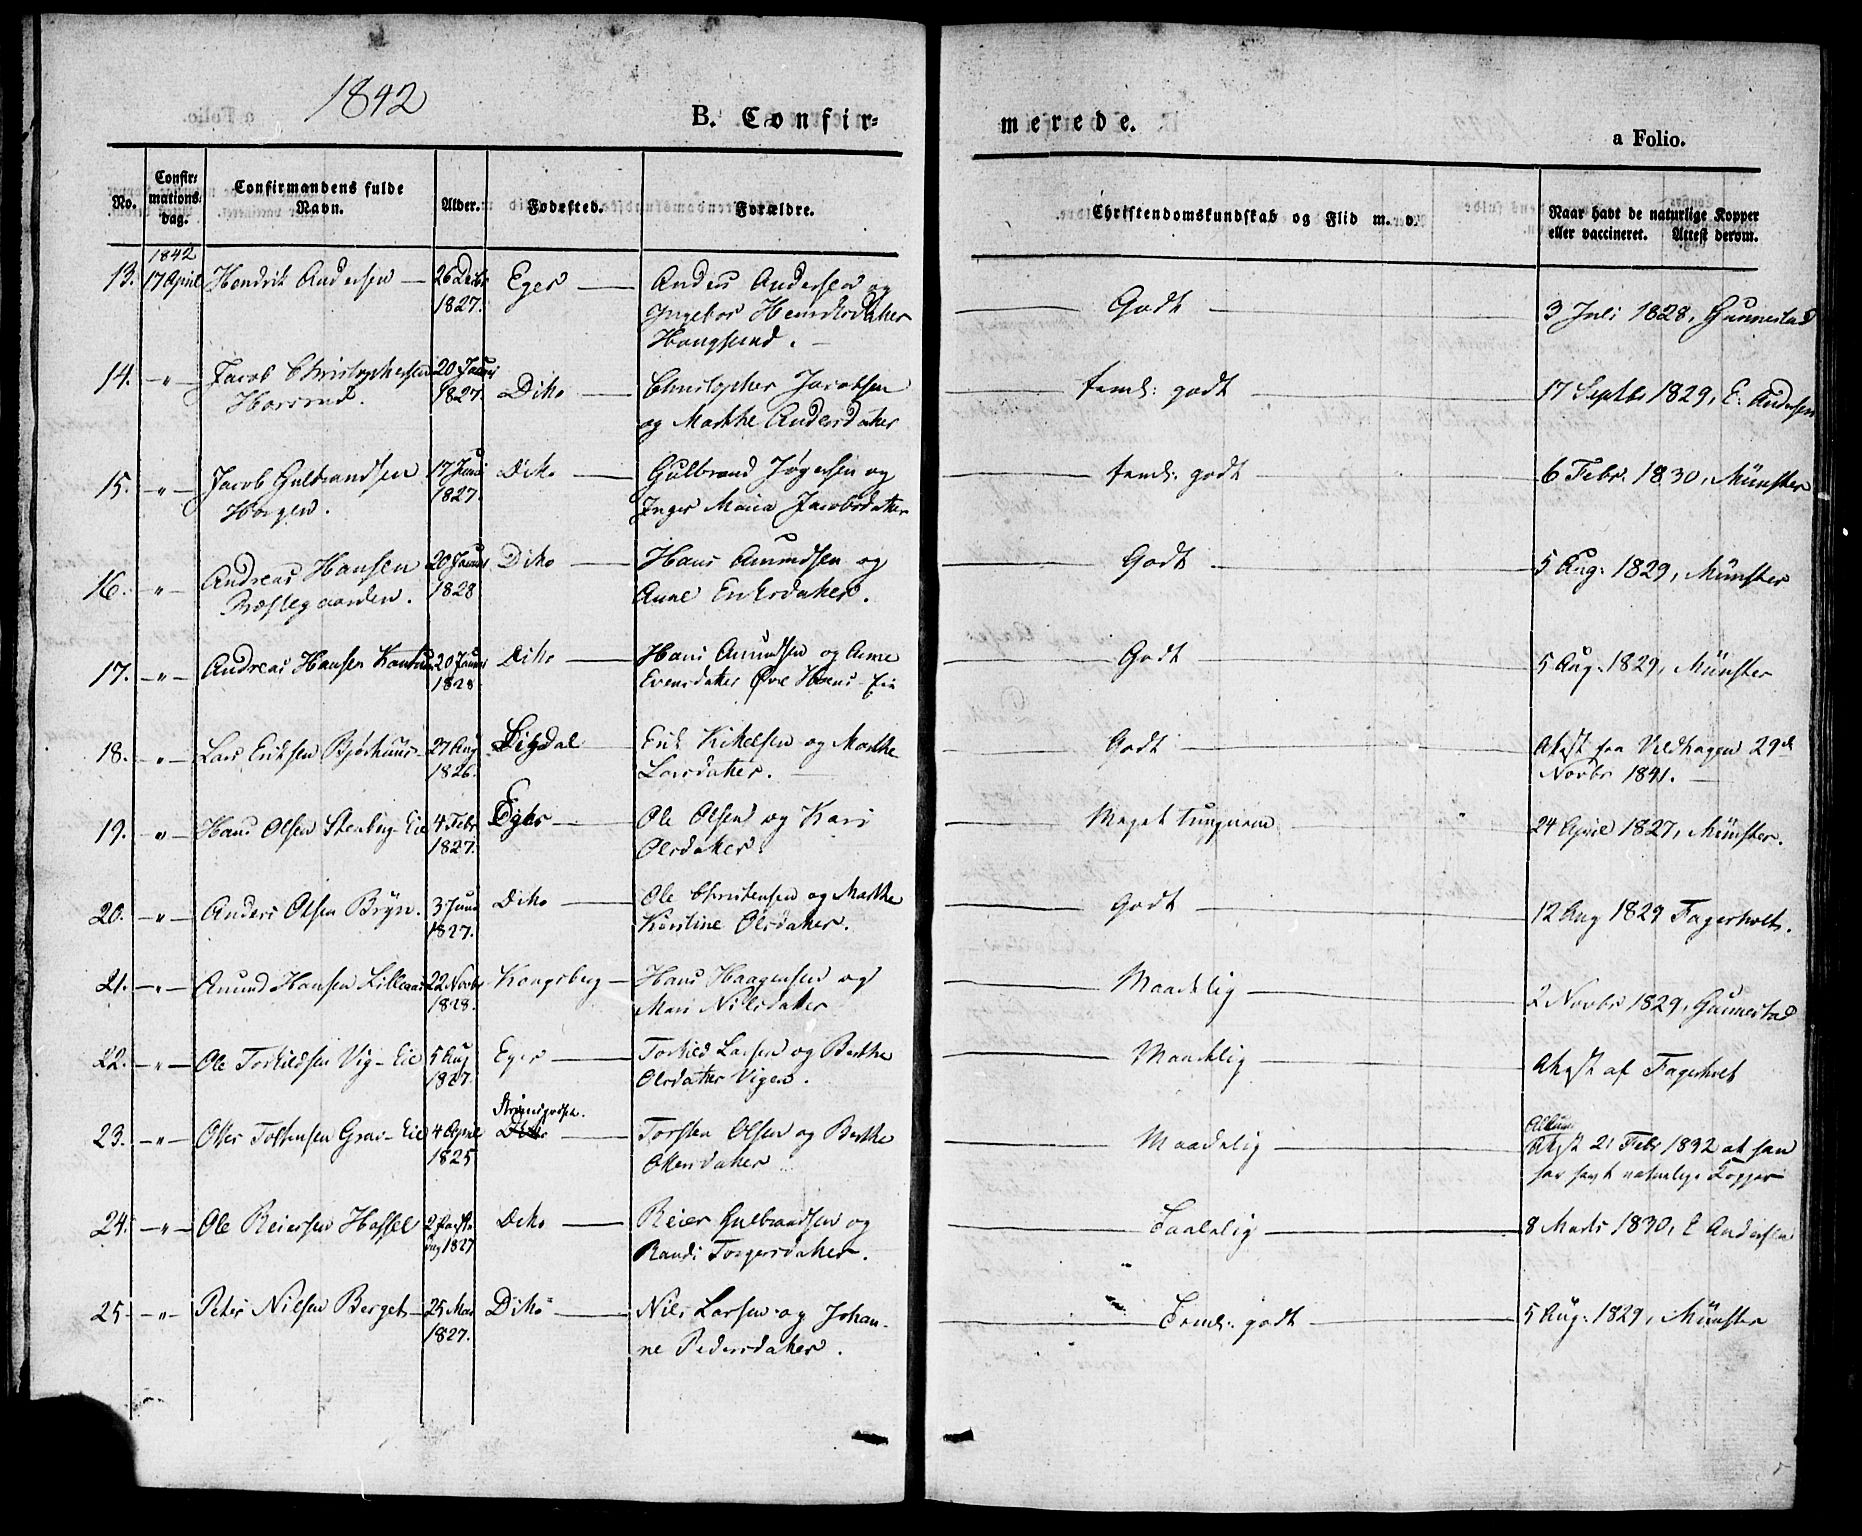 1842
B. Confir=
merede.
a Folio.
No.
Confir=
mations=
dag.
Confirmandens fulde
Navn.
Alder.
Fødested.
Forældre.
Christendomskundskab og Flid m. v.
Naar havt de naturlige Kopper
eller vaccineret. Attest derom.
1842
13. 17 April Hendrik Andersen — 26 Decbr Eger — Anders Andersen og — Godt — 3 Juli 1828, Gunnestad
1827. Ingebor Hendriksdatter
Hougsund. —
14. — " — Jacob Christophersen 20 Januar Dito — Christopher Jacobsen — temlı: godt — 17 Septbr 1829, E. Andersen
1827. og Marthe Andersdatter
15. — " — Jacob Gulbrandsen 17 Juni Dito — Gulbrand Jøgensen og — temlı: godt — 6 Febr. 1830, Münster
Horgen. 1827. Inger Maria Jacobsdatter
16. — " — Andreas Hansen 20 Januar Dito — Hans Amundsen og — Godt — 5 Aug: 1829, Münster
Præstegaarden. 1828 Anne
17. — " — Andreas Hansen 20 Januar Dito — Hans Amundsen og Anne — Godt — 5 Aug. 1829, Münster
1828 Evensdatter Øvre Hoens-Eie
18. — " — Lars Eriksen 27 Aug Sigdal — Erik og Marthe — Godt — Attest fra 29d
1826. Larsdatter. — Novbr 1841. —
19. — " — Hans Olsen Stenberg-Eie 4 Febr Eger — Ole Olsen og Kari — Meget tungnem — 24 April 1827, Münster.
1827. Olsdatter
20. — " — Anders Olsen Bryn. 3 Juni Dito — Ole Christensen og Marthe — Godt — 12 Aug 1829 Fagerholt.
1827. Kirstine Olsdatter.
21. — " — Amund Hansen Lilleaas 22 Novbr Kongsberg — Hans Haagensen og — Maadelig — 2 Novbr 1829, Gunnestad
1828. Mari Nilsdatter
22. — " — Ole Torkildsen Vig-Eie 5 Aug Eger — Torkild Larsen og Berthe — Maadelig — Attest af Fagerholt
1827. Olsdatter Vigen.
Strømsgodset.
23. — " — Otter Tostensen Grav-Eie 4 April Dito — Torsten Olsen og Berthe — Maadelig — Attest 21 Febr 1842 at han
1825 Ottersdatter har havt naturlige Kopper
24. — " — Ole Reiersen Hassel 2 Paaske Dito — Reier Gulbrandsen og — Taalelig — 8 Marts 1830, E Andersen
dag 1827 Randi Torgersdatter.
25. — " — Peter Nilsen Berget — 25 Mai Dito — Nils Larsen og Johan- — Temlı: godt — 5 Aug: 1829, Münster
1827. ne Pedersdatter.